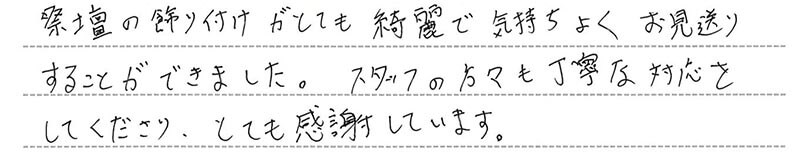 祭壇の飾り付けがとても綺麗で気持ちよくお見送り
することができました。スタッフの方々も丁寧な対応を
してくださり、とても感謝しています。